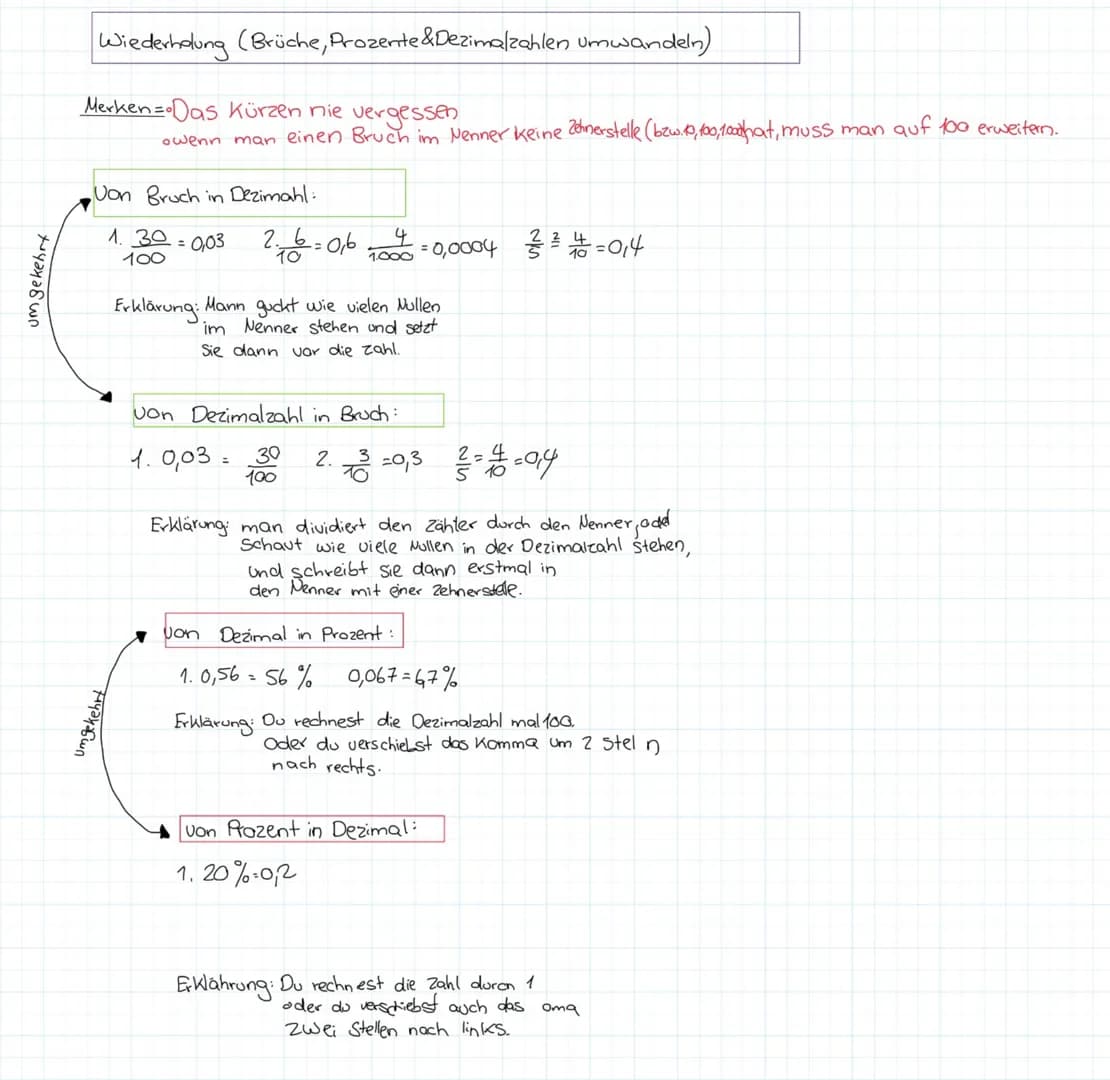 Wiederholung (Brüche, Prozente & Dezimalzahlen umwandeln)
Merken= ∘Das Kürzen nie vergessen
∘wenn man einen Bruch im Nenner keine Zehnerstelle (bzw. 10, 100, 1000) hat, muss man auf 100 erweitern.
Von Bruch in Dezimahl:
1. 30/100 = 0,03 2. 6/10 = 0,6 4/1000 = 0,0004 2/5 2= 4/10 = 0,4
umgekehrt
Erklärung: Mann guckt wie vielen Nullen
im Nenner stehen und setzt
Sie dann vor die Zahl.
von Dezimalzahl in Bruch:
1. 0,03 = 30/100 2. 3/10 = 0,3 2/5 = 4/10 = 0,4
Erklärung: man dividiert den Zähler durch den Nenner,
Schaut wie viele Nullen in der Dezimalzahl stehen,
und schreibt sie dann erstmal in
den Nenner mit einer Zehnerstelle.
von Dezimal in Prozent:
1. 0,56 = 56 % 0,067 = 67%
umgekehrt
Erklärung: Du rechnest die Dezimalzahl mal 100.
Oder du verschiebst das Komma um 2 Stel n
nach rechts.
von Prozent in Dezimal:
1. 20%=0,2
Erklährung: Du rechnest die Zahl durch 1
oder du verschiebst auch das oma
zwei Stellen nach links.